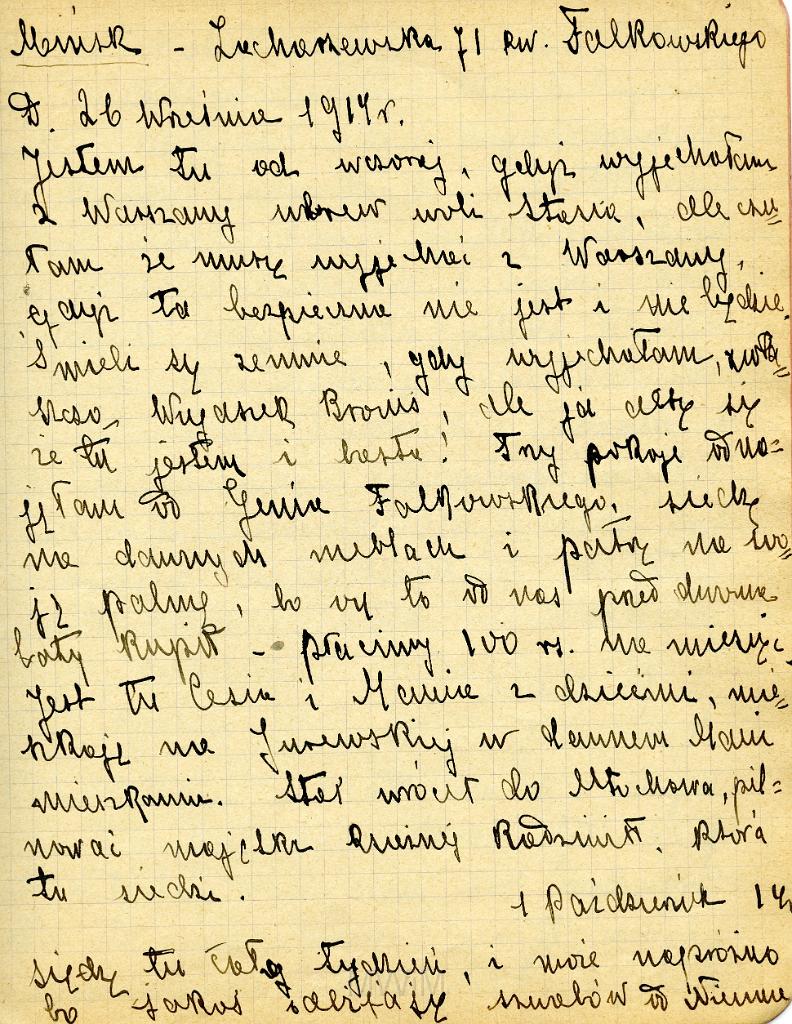 Mińsk - Zacharzewska 71 kw. Falkowskiego
D. 26 Września 1914 r.
Jestem tu od wczoraj, gdyż wyjechałam
z Warszawy wbrew woli Stasia, ale czu=
łam że muszę wyjechać z Warszawy,
gdyż ta bezpieczna nie jest i nie będzie.
Śmieli się zemnie, gdy wyjechałam, zwła=
szcza Wujaszek Broniś, ale ja cieszę się
że tu jestem i basta! Trzy pokoje odna=
jęłam od Genia Falkowskiego, siedzę
na dawnych meblach i patrzę na swo=
ją palmę, bo on to od nas przed dwoma
laty kupił - płacimy 100 rs. na miesiąc.
Jest tu Cesia i Mania z dziećmi, mie=
szkają na Jurewskiej w dawnem Mani
mieszkaniu. Staś wrócił do Młochowa, pil=
nować majątku licznej Rodziny, która
tu siedzi.
1 Październik 14
siędzę tu cały tydzień, i może napróżno
bo jakoś szwabów od Niemna